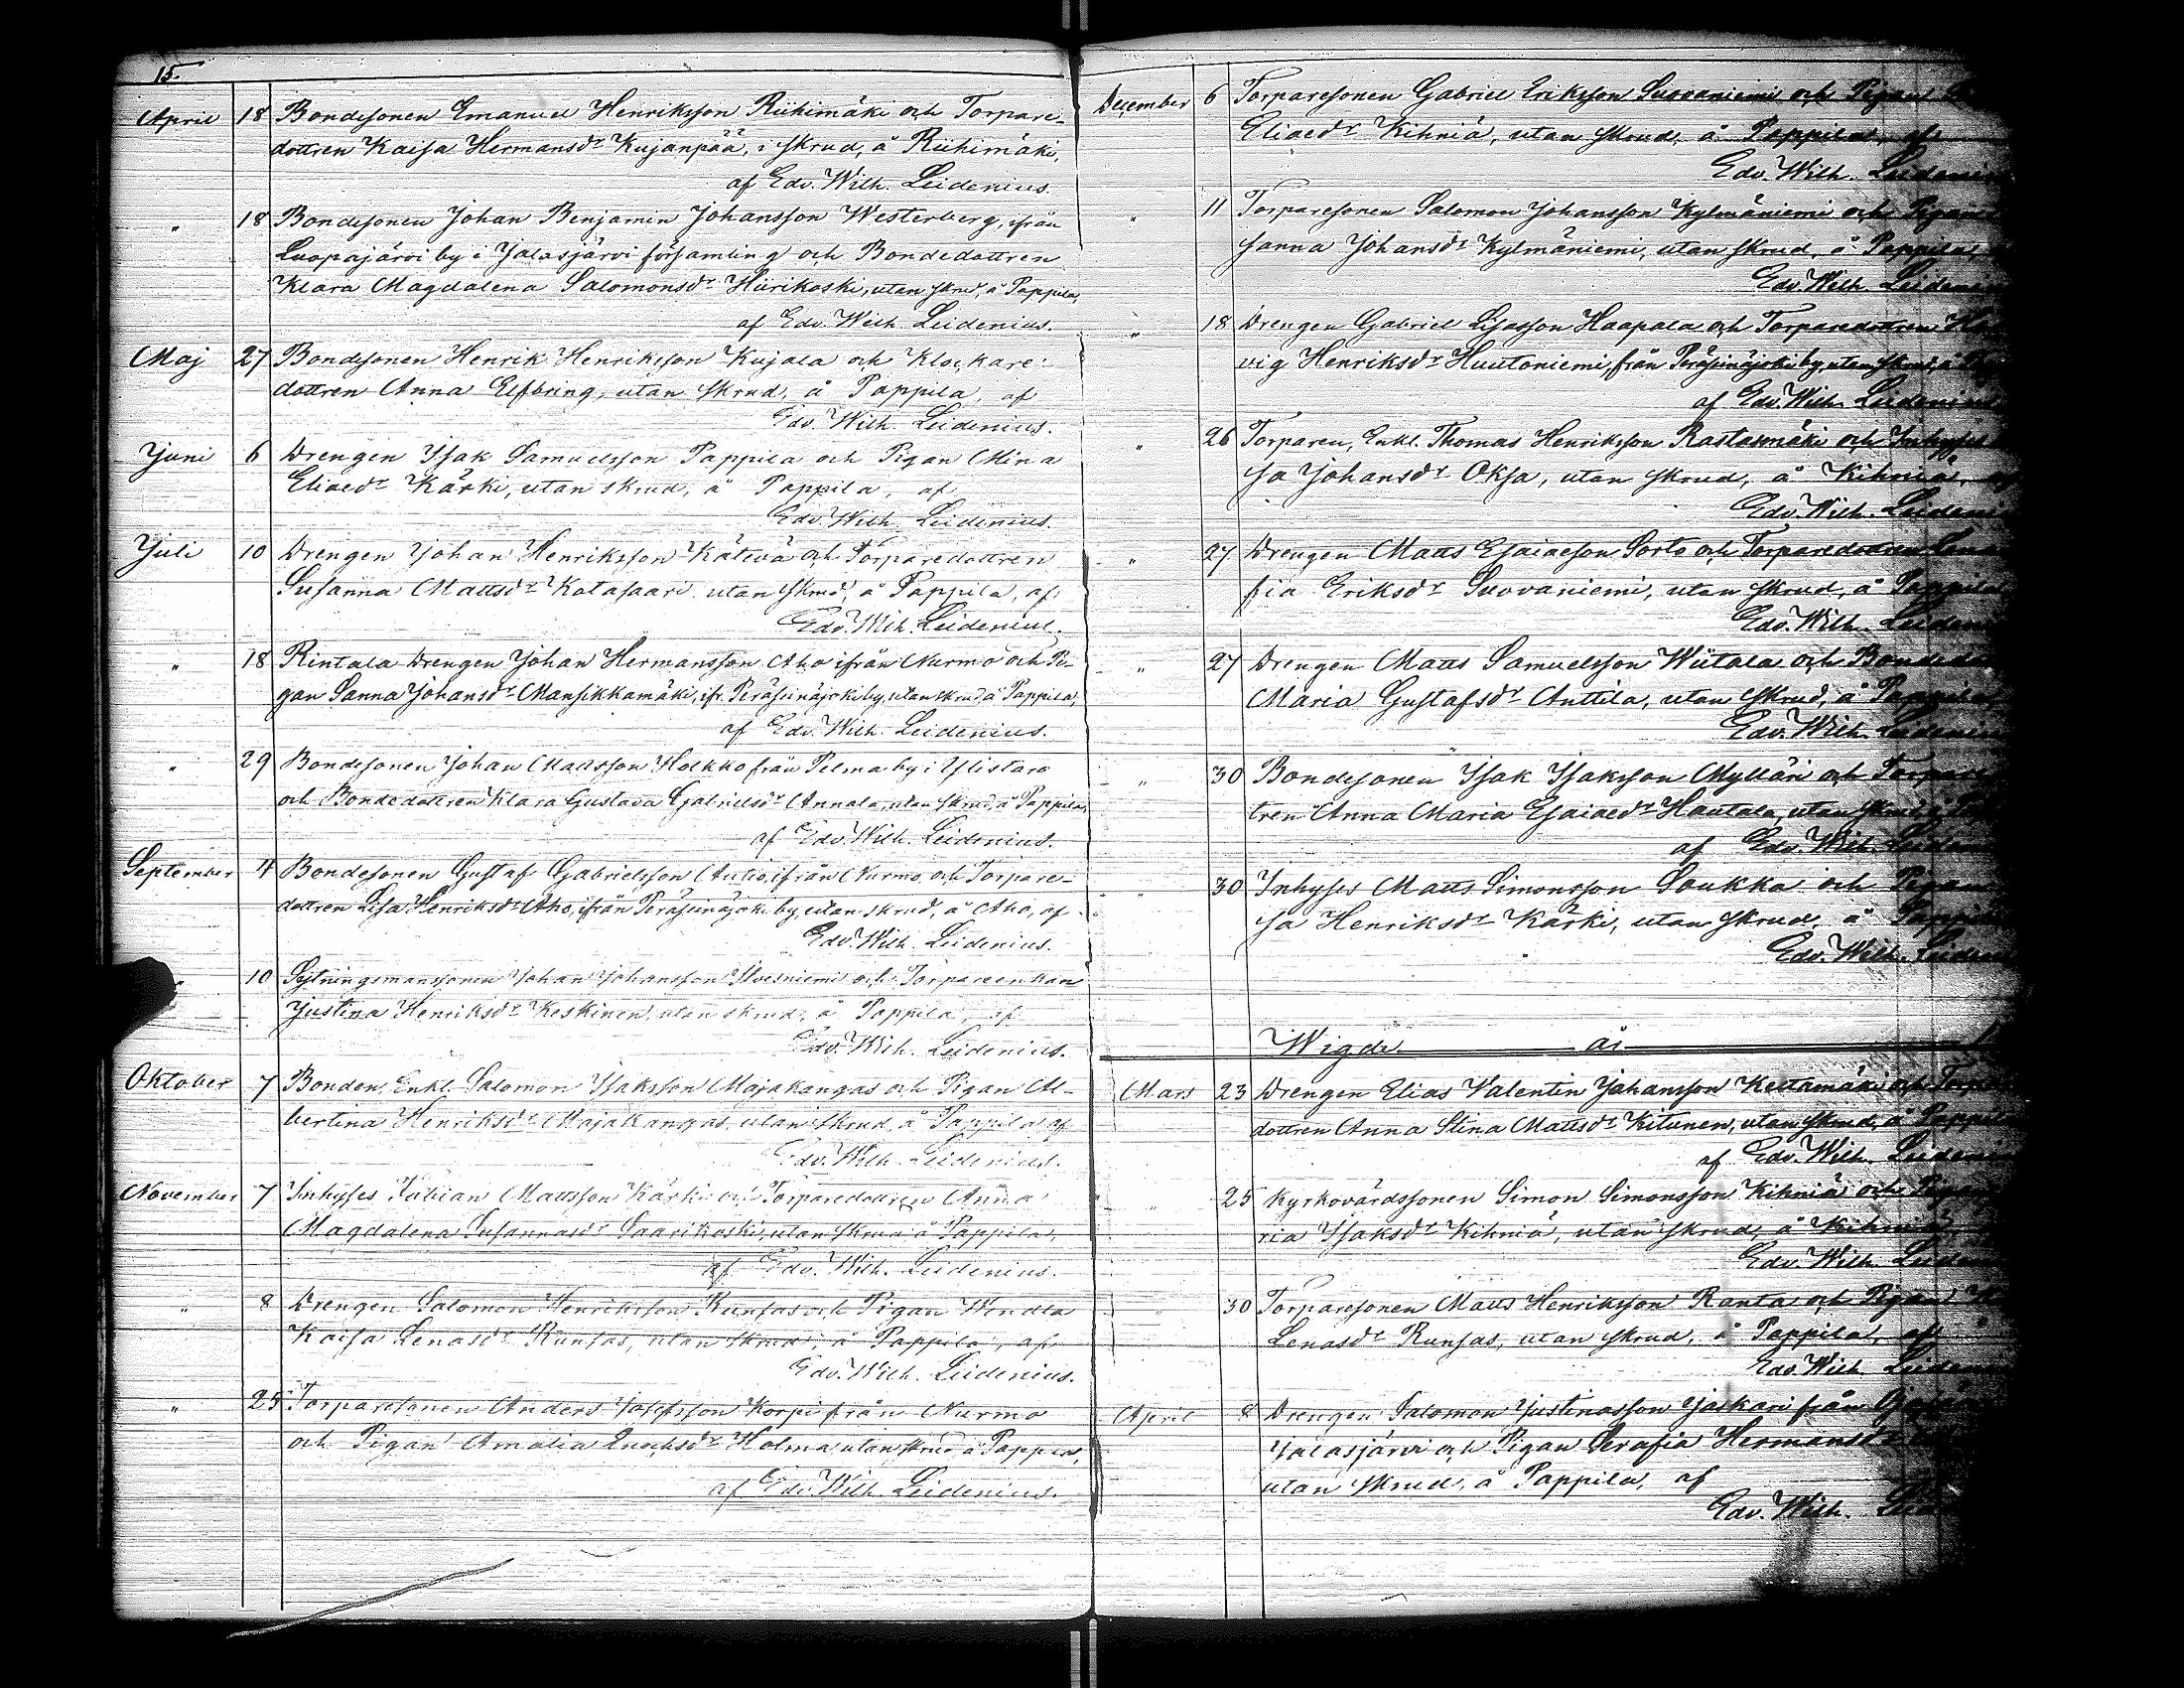 15.
April 18 Bondesonen Emanuel Henriksson Riihimäki och Torpare-
dottren Kaisa Hermansdr Kujanpää, i skrud, å Riihimäki,
af Edv. Wilh. Leidenius.
" 18 Bondesonen Johan Benjamin Johansson Westerberg, ifrån
Luopajärvi by i Jalasjärvi församling och Bondedottren
Klara Magdalena Salomonsdr Hiirikoski, utan skrud, å Pappila,
af Edv. Wilh. Leidenius.
Maj 27 Bondesonen Henrik Henriksson Kujala och Klockare-
dottren Anna Elfving, utan skrud, å Pappila, af
Edv. Wilh. Leidenius.
Juni 6 Drengen Isak Samuelsson Pappila och Pigan Mina
Eliaedr Kärki, utan skrud, å Pappila, af
Edv. Wilh. Leidenius.
Juli 10 Drengen Johan Henriksson Kätevä och Torparedottren
Susanna Mattsdr Katasaari utan skrud, å Pappila, af
Edv. Wilh. Leidenius.
" 18 Rintala Drengen Johan Hermansson Aho ifrån Nurmo och Pi-
gan Sanna Johansdr Mansikkamäki, ifr. Peräseinäjoki by, utan skrud, å Pappila,
af Edv. Wilh. Leidenius.
" 29 Bondesonen Johan Mattsson Hokko från Pelma by i Ylistaro
och Bondedottren Klara Gustava Gabrielsdr Annala, utan skrud, å Pappila,
af Edv. Wilh. Leidenius.
September 4 Bondesonen Gustaf Gabrielsson Autio, ifrån Nurmo och Torpare-
dottren Lisa Henriksdr Aho, ifrån Peräseinäjoki by, utan skrud, å Aho, af
Edv. Wilh. Leidenius.
" 10 Sytningsmanssonen Johan Johansson Ilvesniemi och Torpareenkan
Justina Henriksdr Keskinen, utan skrud, å Pappila, af
Edv. Wilh. Leidenius.
Oktober 7 Bonden, Enkl. Salomon Isaksson Majakangas och Pigan Al-
bertina Henriksdr Majakangas, utan skrud, å Pappila af
Edv. Wilh. Leidenius.
November 7 Inhyses Fabian Mattsson Kärki och Torparedottren Anna
Magdalena Susannasdr Saarikoski, utan skrud å Pappila,
af Edv. Wilh. Leidenius.
" 8 Drengen Salomon Henriksson Runsas och Pigan Wendla
Kaisa Lenasdr Runsas, utan skrud, å Pappila, af
Edv. Wilh. Leidenius.
" 25 Torparesonen Anders Josefsson Korpi från Nurmo
och Pigan Amalia Enoksdr Holma utan skrud å Pappila,
af Edv. Wilh. Leidenius.
December 6 Torparesonen Gabriel Eriksson Suovaniemi och Pigan
Eliaedr Kihniä, utan skrud, å Pappila, af
Edv. Wilh. Leidenius
" 11 Torparesonen Salomon Johansson Kylmäniemi och Pigan
Sanna Johansdr Kylmäniemi, utan skrud, å Pappila,
Edv. Wilh. Leidenius
" 18 Drengen Gabriel Lisasson Haapala och Torparedottren
vig Henriksdr Huutoniemi, från Peräseinäjoki by, utan skrud, å
af Edv. Wilh. Leidenius
" 26 Torparen, Enkl. Thomas Henriksson Rastasmäki och Inhyses
sa Johansdr Oksa, utan skrud, å Kihniä,
Edv. Wilh. Leidenius
" 27 Drengen Matts Esaiaeson Sorto och Torparedottren
fia Eriksdr Suovaniemi, utan skrud, å Pappila
Edv. Wilh. Leidenius
" 27 Drengen Matts Samuelsson Wiitala och
Maria Gustafsdr Anttila, utan skrud, å Pappila,
Edv. Wilh. Leidenius
" 30 Bondesonen Isak Isaksson Mylläri och
tren Anna Maria Esaiaedr Hautala, utan skrud,
af Edv. Wilh.
" 30 Inhyses Matts Simonsson Soukka och Pigan
sa Henriksdr Kärki, utan skrud, å Pappila
Edv. Wilh.
Wigde år
Mars 23 Drengen Elias Valentin Johansson Keltamäki och
dottren Anna Stina Mattsdr Kitunen, utan skrud, å Pappila
af Edv. Wilh. Leidenius
" 25 Kyrkovärdssonen Simon Simonsson Kihniä och Pigan
ria Isaksdr Kihniä, utan skrud, å Kihniä
Edv. Wilh.
" 30 Torparesonen Matts Henriksson Ranta och Pigan
Lenasdr Runsas, utan skrud, å Pappila, af
Edv. Wilh. Leidenius
April 8 Drengen Salomon Justinasson Jaskari från
Jalasjärvi och Pigan Serafia Hermansdr
utan skrud, å Pappila, af
Edv. Wilh.